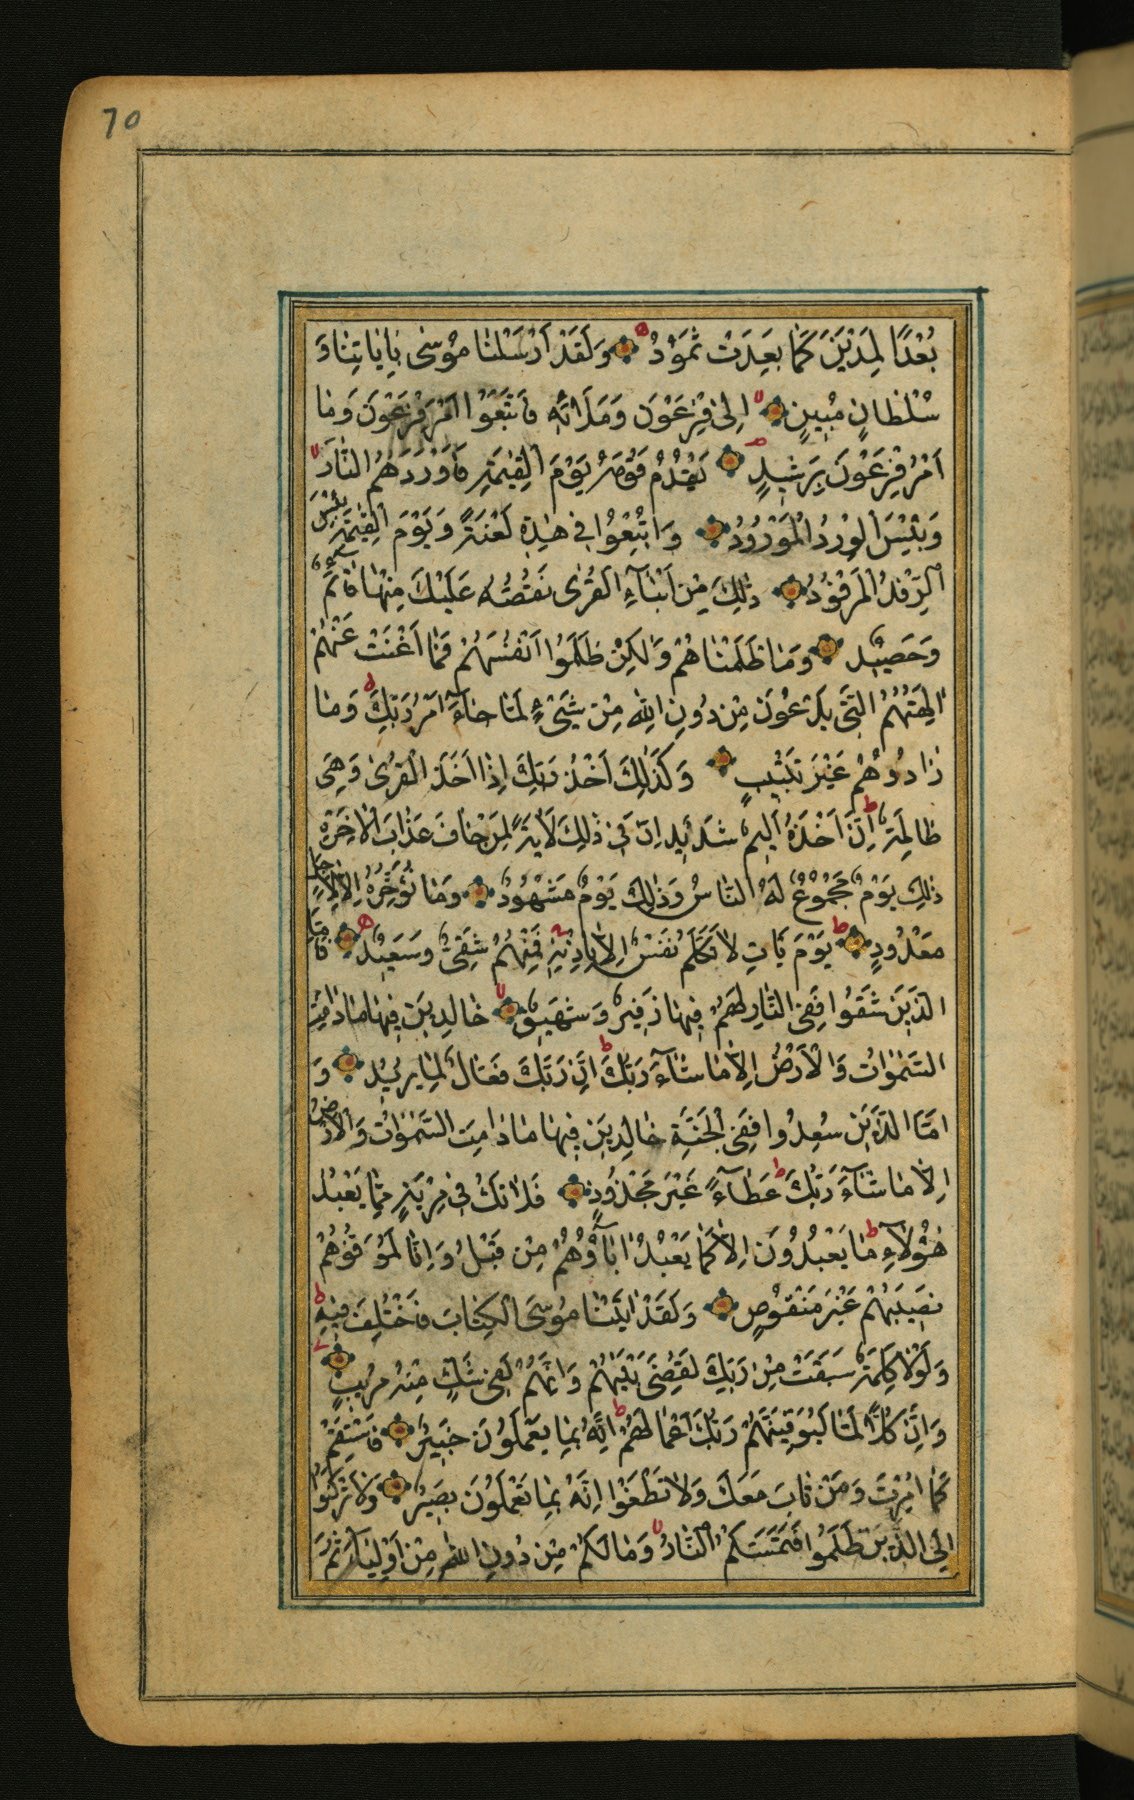 70
بُعْدًا لِمَدْيَنَ كَمَا بَعِدَتْ ثَمُوْدُ وَلَقَدْ اَرْسَلْنَا مُوْسٰى بِاٰيَاتِنَا وَ
سُلْطَانٍ مُبِينٍ اِلٰى فِرْعَوْنَ وَمَلَائِهٖ فَاتَّبَعُوْا اَمْرَ فِرْعَوْنَ وَمَا
اَمْرُ فِرْعَوْنَ بِرَشِيدٍ يَقْدُمُ قَوْمَهُ يَوْمَ الْقِيٰمَةِ فَاَوْرَدَهُمُ النَّارَ
وَبِئْسَ الْوِرْدُ الْمَوْرُوْدُ وَاُتْبِعُوْا فِى هٰذِهٖ لَعْنَةً وَيَوْمَ الْقِيٰمَةِ بِئْسَ
الرِّفْدُ الْمَرْفُوْدُ ذٰلِكَ مِنْ اَنْبَآءِ الْقُرٰى نَقُصُّهُ عَلَيْكَ مِنْهَا قَآئِمٌ
وَحَصِيْدٌ وَمَا ظَلَمْنَاهُمْ وَلٰكِنْ ظَلَمُوْا اَنْفُسَهُمْ فَمَا اَغْنَتْ عَنْهُمْ
اٰلِهَتُهُمْ الَّتِى يَدْعُوْنَ مِنْ دُوْنِ اللهِ مِنْ شَىْءٍ لَمَّا جَآءَ اَمْرُ رَبِّكَ وَمَا
زَادُوْهُمْ غَيْرَ تَتْبِيْبٍ وَكَذٰلِكَ اَخْذُ رَبِّكَ اِذَا اَخَذَ الْقُرٰى وَهِىَ
ظَالِمَةٌ اِنَّ اَخْذَهُ اَلِيْمٌ شَدِيْدٌ اِنَّ فِى ذٰلِكَ لَاٰيَةً لِمَنْ خَافَ عَذَابَ الْاٰخِرَةِ
ذٰلِكَ يَوْمٌ مَجْمُوْعٌ لَهُ النَّاسُ وَذٰلِكَ يَوْمٌ مَشْهُوْدٌ وَمَا نُؤَخِّرُهُ اِلَّا لِاَجَلٍ
مَعْدُوْدٍ يَوْمَ يَاْتِ لَا تَكَلَّمُ نَفْسٌ اِلَّا بِاِذْنِهٖ فَمِنْهُمْ شَقِىٌّ وَسَعِيْدٌ فَاَمَّا
الَّذِيْنَ شَقُوْا فَفِى النَّارِ لَهُمْ فِيْهَا زَفِيْرٌ وَشَهِيْقٌ خَالِدِيْنَ فِيْهَا مَا دَامَتِ
السَّمٰوَاتُ وَالْاَرْضُ اِلَّا مَا شَآءَ رَبُّكَ اِنَّ رَبَّكَ فَعَّالٌ لِمَا يُرِيْدُ وَ
اَمَّا الَّذِيْنَ سُعِدُوا فَفِى الْجَنَّةِ خَالِدِيْنَ فِيْهَا مَا دَامَتِ السَّمٰوَاتُ وَالْاَرْضُ
اِلَّا مَا شَآءَ رَبُّكَ عَطَآءً غَيْرَ مَجْذُوْذٍ فَلَا تَكُ فِى مِرْيَةٍ مِمَّا يَعْبُدُ
هٰؤُلَآءِ مَا يَعْبُدُوْنَ اِلَّا كَمَا يَعْبُدُ اٰبَآؤُهُمْ مِنْ قَبْلُ وَاِنَّا لَمُوَفُّوْهُمْ
نَصِيْبَهُمْ غَيْرَ مَنْقُوْصٍ وَلَقَدْ اٰتَيْنَا مُوْسَى الْكِتَابَ فَاخْتُلِفَ فِيْهِ
وَلَوْلَا كَلِمَةٌ سَبَقَتْ مِنْ رَبِّكَ لَقُضِىَ بَيْنَهُمْ وَاِنَّهُمْ لَفِى شَكٍّ مِنْهُ مُرِيْبٍ
وَاِنَّ كُلًّا لَمَّا لَيُوَفِّيَنَّهُمْ رَبُّكَ اَعْمَالَهُمْ اِنَّهُ بِمَا يَعْمَلُوْنَ خَبِيْرٌ فَاسْتَقِمْ
كَمَا اُمِرْتَ وَمَنْ تَابَ مَعَكَ وَلَا تَطْغَوْا اِنَّهُ بِمَا تَعْمَلُوْنَ بَصِيْرٌ وَلَا تَرْكَنُوْا
اِلَى الَّذِيْنَ ظَلَمُوْا فَتَمَسَّكُمُ النَّارُ وَمَا لَكُمْ مِنْ دُوْنِ اللهِ مِنْ اَوْلِيَآءَ ثُمَّ